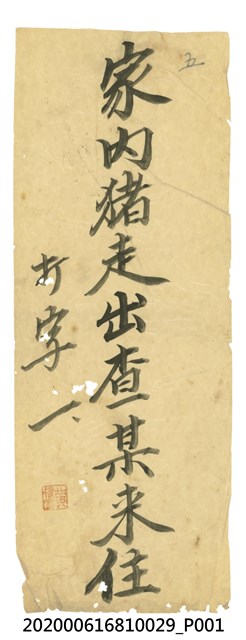 五
家内猪走出查某来住
打字一
202000616810029_P001